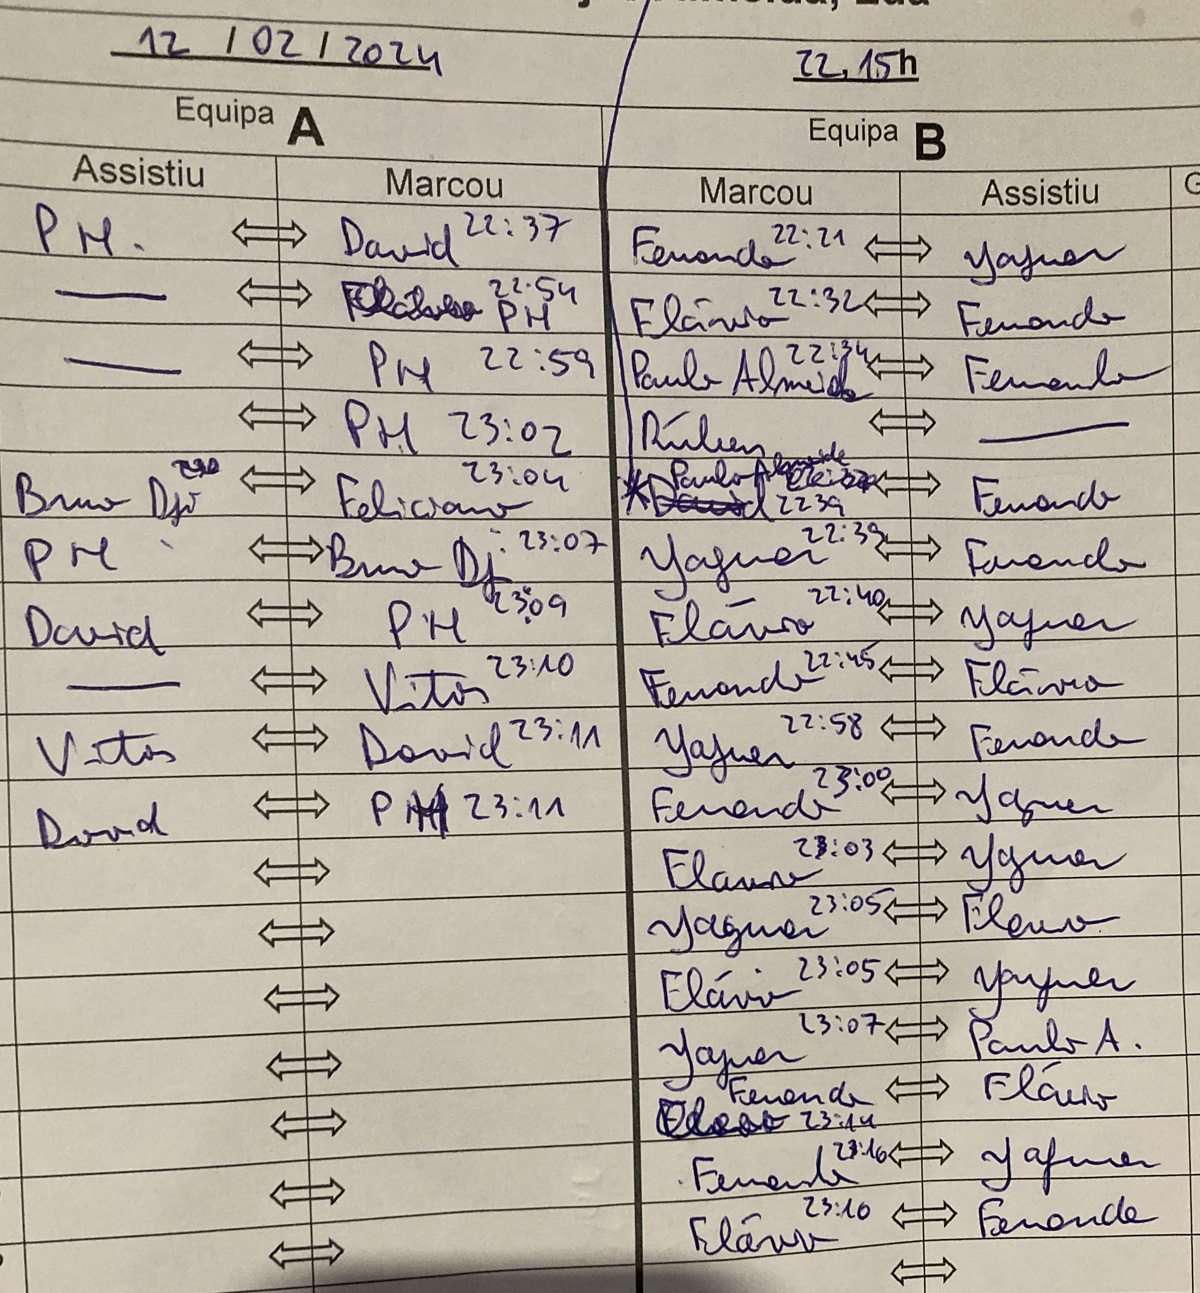 12 / 02 / 2024 22,15h
Equipa A Equipa B
Assistiu Marcou Marcou Assistiu
PH. David 22:37 Fernando 22:21 Yaguer
— 22:54 PH Flávio 22:32 Fernando
— PH 22:59 Paulo Almeida 22:34 Fernando
PH 23:02 Rúben —
Bruno Dji Feliciano 23:04 * Paulo Almeida 2239 Fernando
PH Bruno Dj. 23:07 Yaguer 22:39 Fernando
David PH 23:09 Flávio 22:40 Yaguer
— Vitor 23:10 Fernando 22:45 Flávio
Vitor David 23:11 Yaguer 22:58 Fernando
David PH 23:11 Fernando 23:00 Yaguer
Flavio 23:03 Yaguer
Yaguer 23:05 Flavio
Flávio 23:05 Yaguer
Yaguer 23:07 Paulo A.
Fernando 23:14 Flávio
Fernando 23:16 Yaguer
Flávio 23:10 Fernando